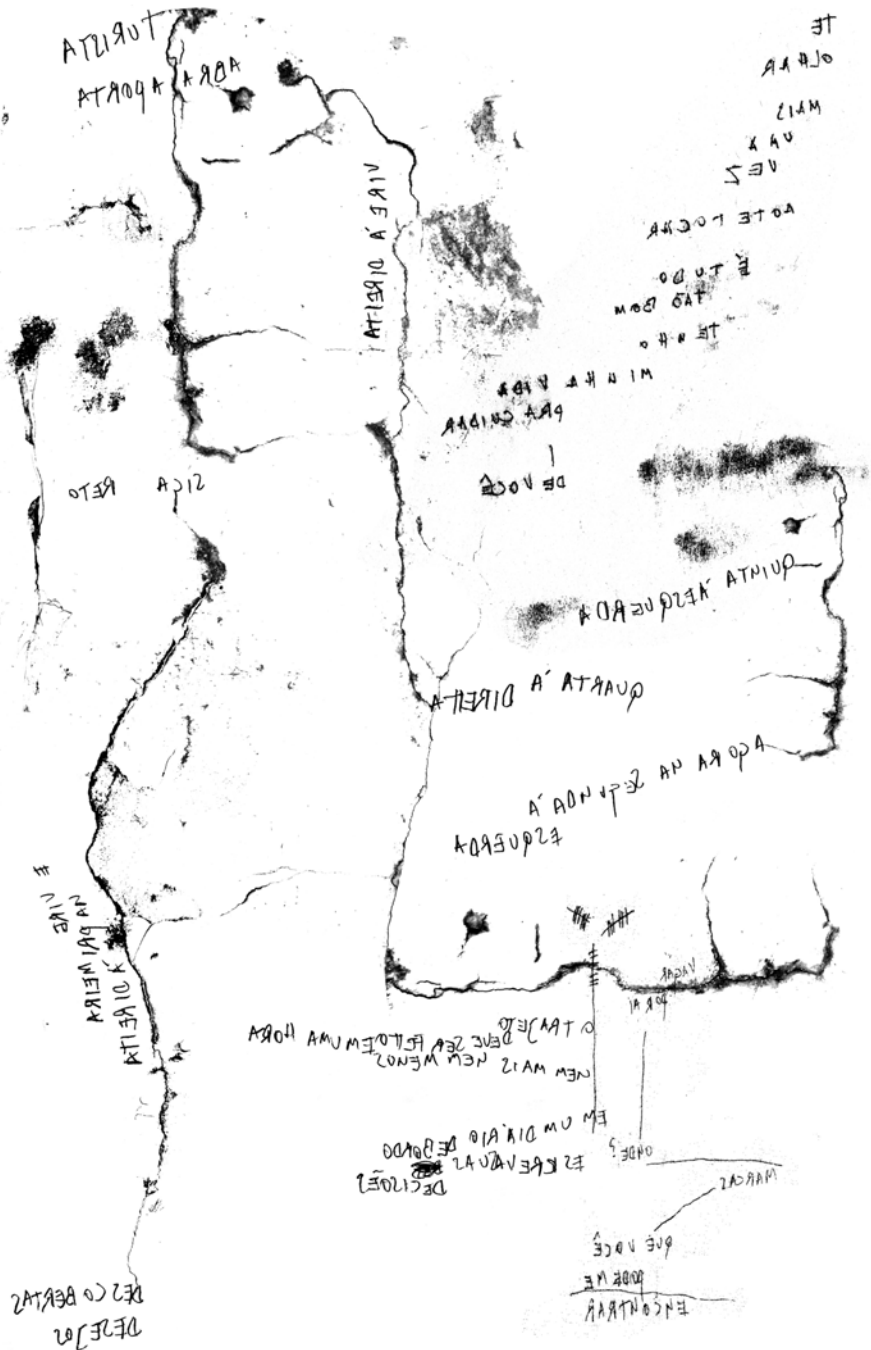 TURISTA
ABRA A PORTA
VIRE À DIREITA
SIGA RETO
E VIRE
NA PRIMEIRA
À DIREITA
DESCOBERTAS
DESEJOS
TE
OLHAR
MAIS
UMA
VEZ
AO TE TOCAR
É TUDO
TÃO BOM
TENHO
MINHA VIDA
PRA CUIDAR
DE VOCÊ
QUINTA À ESQUERDA
QUARTA À DIREITA
AGORA NA SEGUNDA À
ESQUERDA
VAGAR
POR AI
O TRAJETO
DEVE SER FEITO EM UMA HORA
NEM MAIS NEM MENOS
EM UM DIÁRIO DE BORDO
ESCREVA SUAS
DECISÕES
ONDE?
MARCAS
QUE VOCÊ
PODE ME
ENCONTRAR